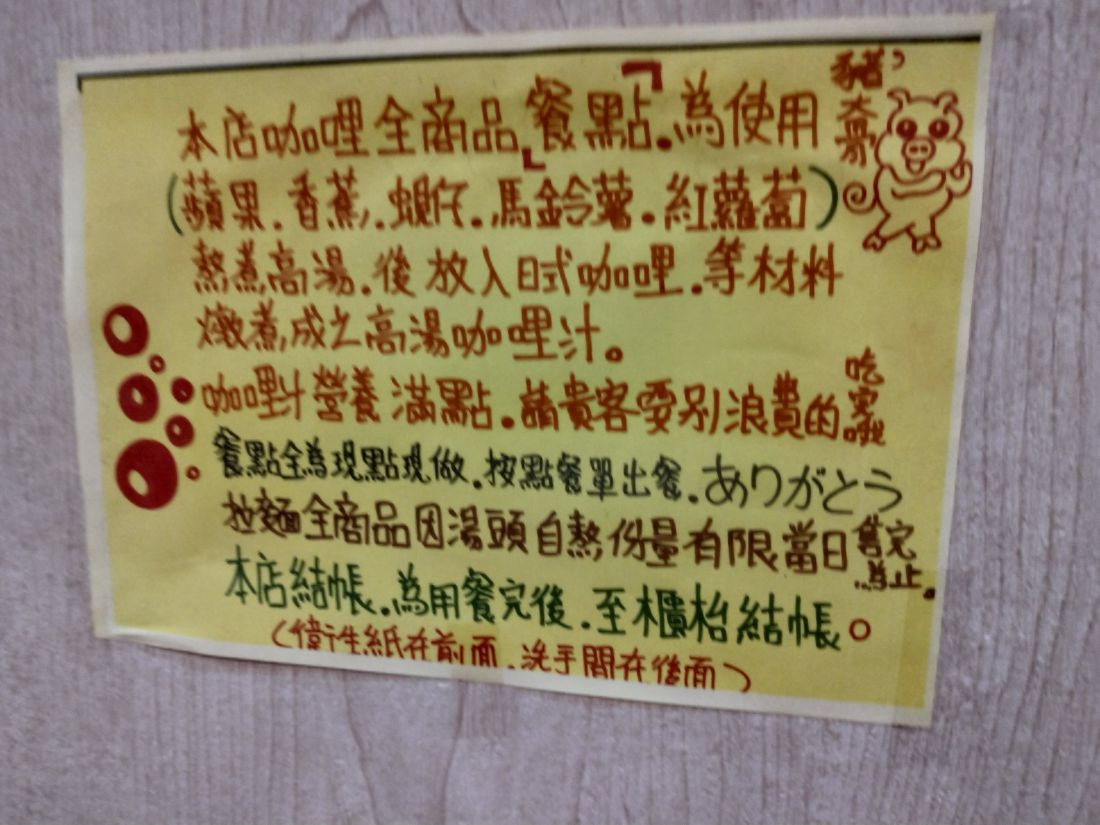 本店咖哩全商品「餐點」.為使用
(蘋果.香蕉.蝦仔.馬鈴薯.紅蘿蔔)
熬煮高湯.後放入日式咖哩.等材料
燉煮成之高湯咖哩汁。
咖哩汁營養滿點.請貴客要別浪費的吃完哦
餐點全為現點現做.按點餐單出餐.ありがとう
拉麵全商品因湯頭自熬份量有限當日售完為止.
本店結帳.為用餐完後.至櫃枱結帳。
(衛生紙在前面.洗手間在後面)
豬